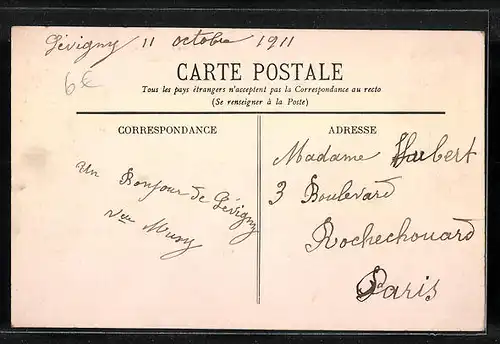 Lévigny 11 octobre 1911
6€
CARTE POSTALE
Tous les pays étrangers n'acceptent pas la Correspondance au recto
(Se renseigner à la Poste)
CORRESPONDANCE
Un Bonjour de Lévigny
ADRESSE
Madame Hubert
3 Boulevard
Rochechouard
Paris